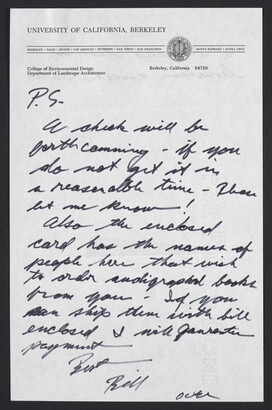 UNIVERSITY OF CALIFORNIA, BERKELEY
BERKELEY • DAVIS • IRVINE • LOS ANGELES • RIVERSIDE • SAN DIEGO • SAN FRANCISCO
SANTA BARBARA • SANTA CRUZ
College of Environmental Design
Department of Landscape Architecture
Berkeley, California 94720
P.S.
A check will be
forthcomming - if you
do not get it in
a reasonable time - Please
let me know!
Also the enclosed
card has the names of
people here that wish
to order autographed books
from you - If you
can ship them with bill
enclosed I will guarantee
payment
Best
Bill
over